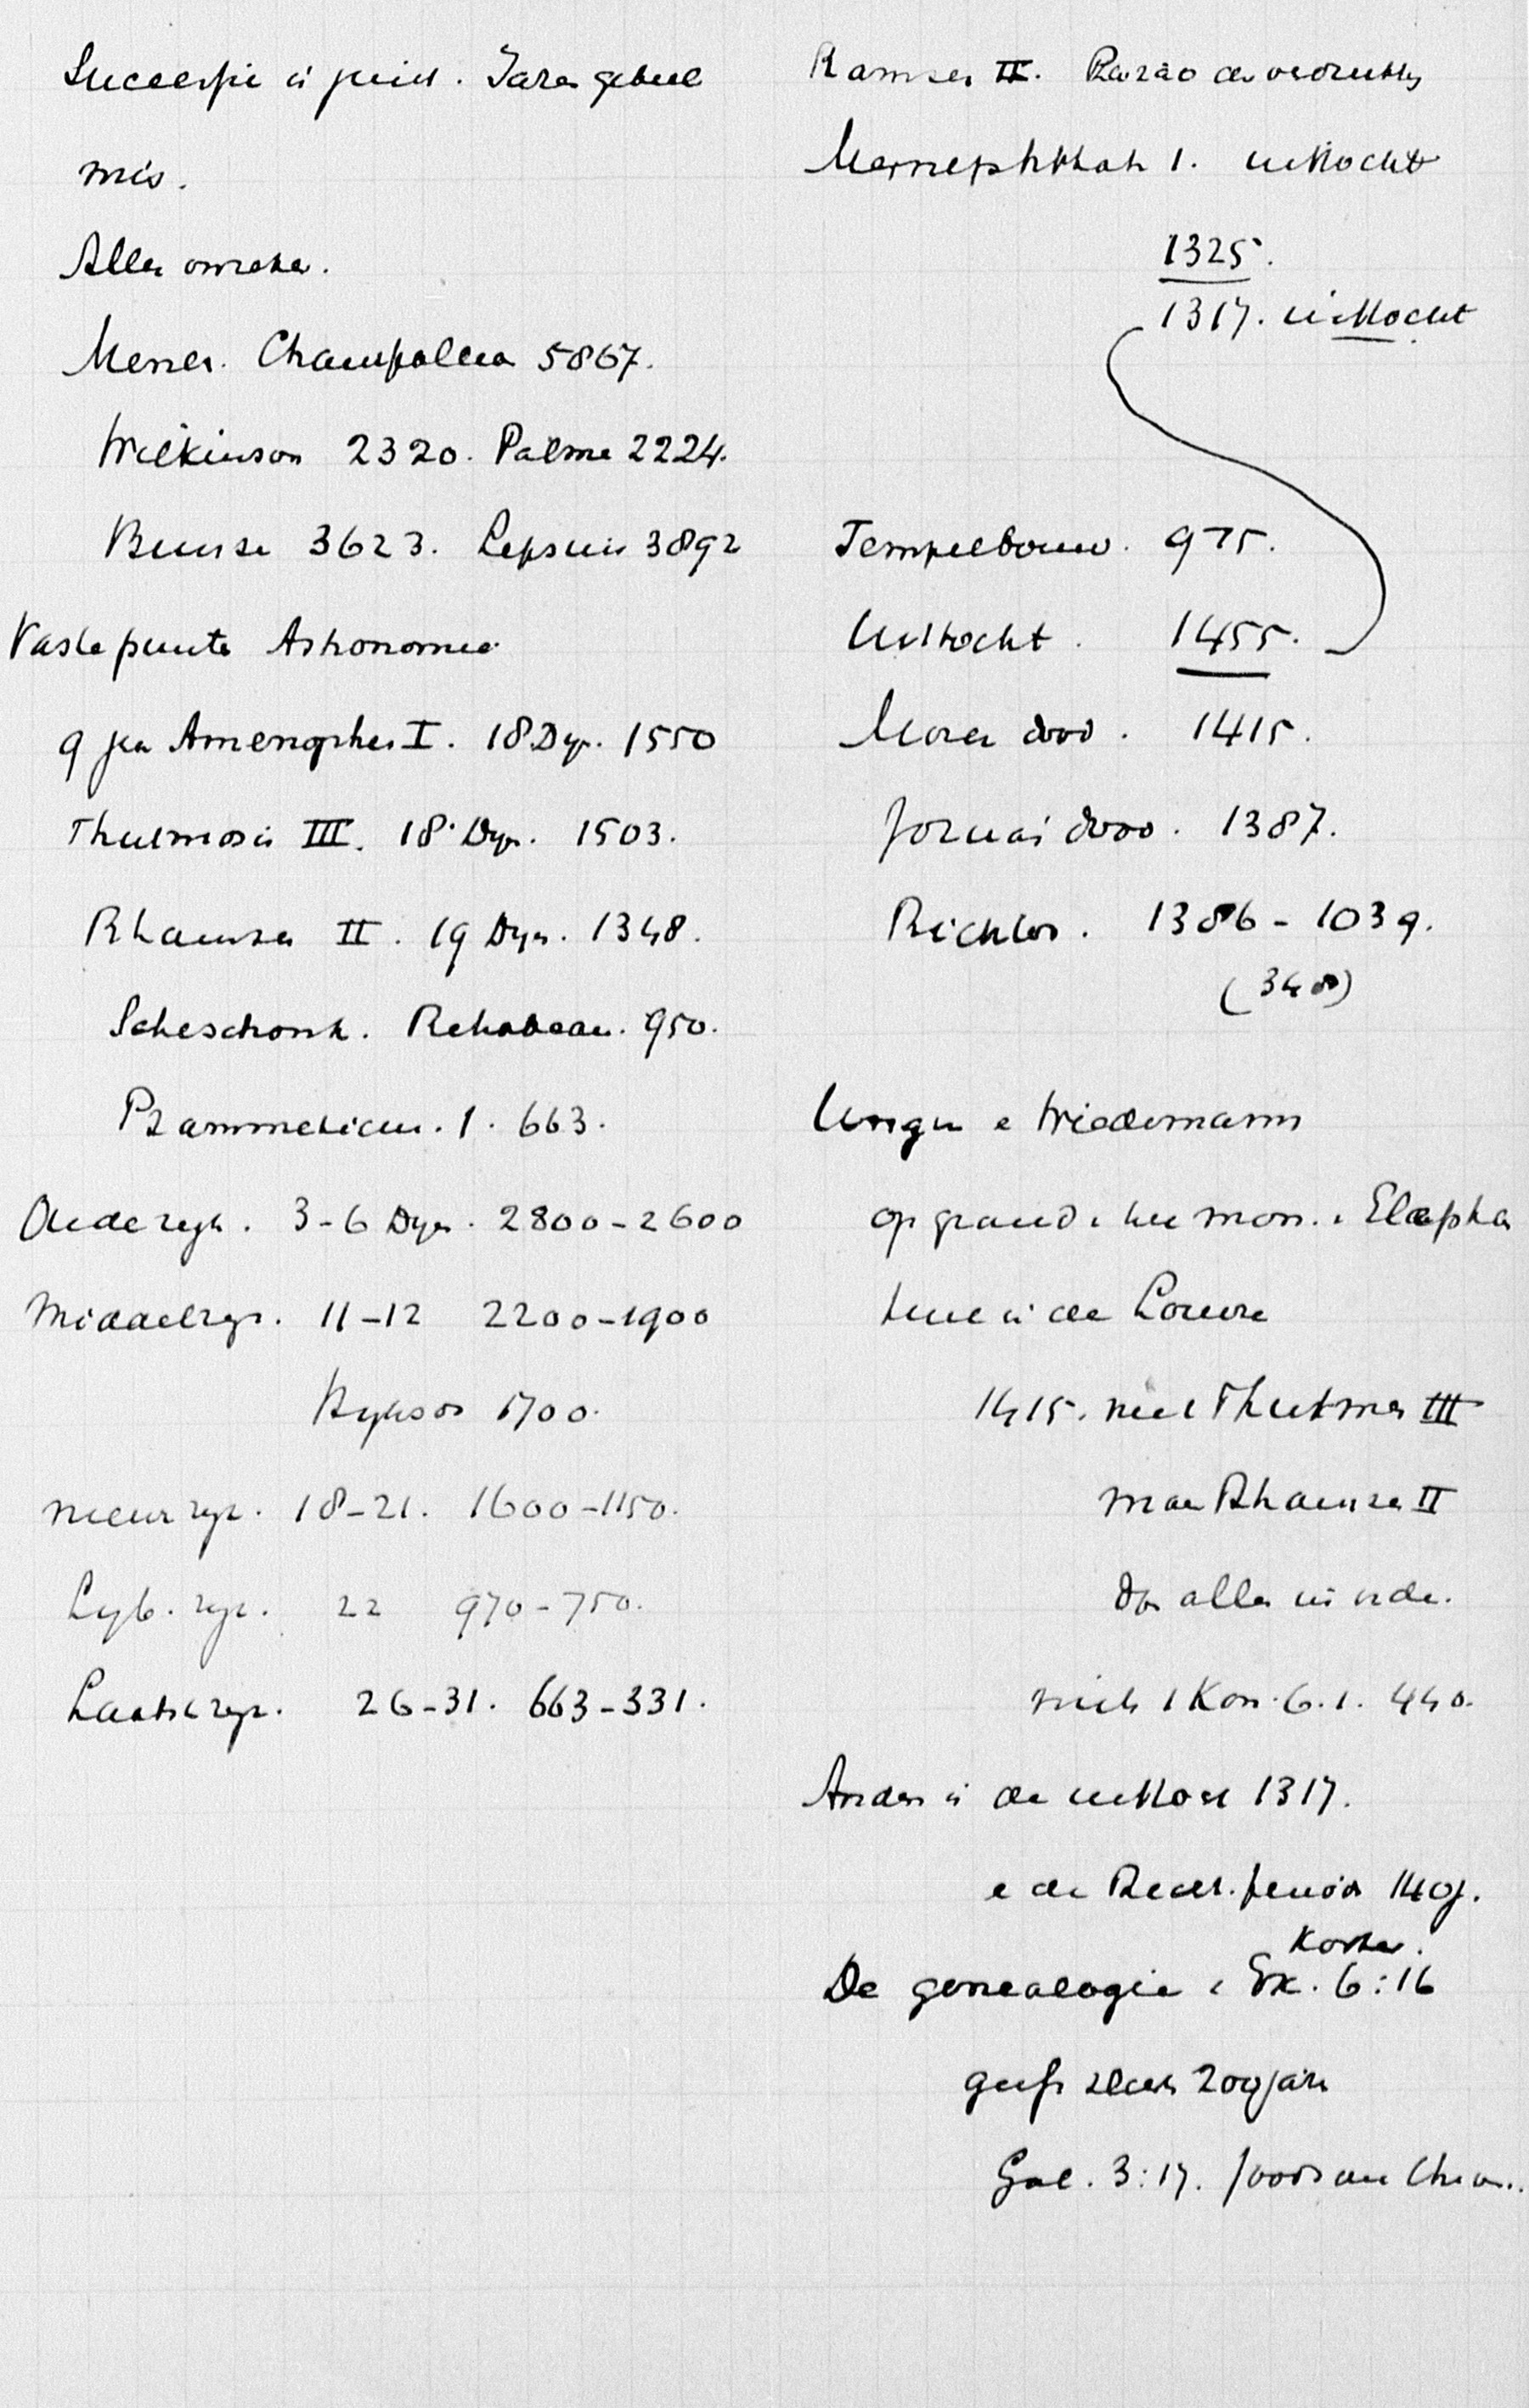 Successie is juist. Jaren geheel
mis.
Alles onzeker.
Menes. Champollion 5867.
Wilkinson 2320. Palmer 2224.
Bunsen 3623. Lepsius 3892
Vaste punten Astronomie
9 jaar Amenophes I. 18 Dyn. 1550
Thutmosis III. 18 Dyn. 1503.
Rhamses II. 19 Dyn. 1348.
Scheschonk. Rehabeam. 950.
Psammetichus. 1. 663.
Oude rijk. 3-6 Dyn. 2800-2600
Middelrijk. 11-12 2200-1900
Hyksos 1700.
nieuw rijk. 18-21. 1600-1150.
Lyb. rijk. 22 970-750.
Laatste rijk. 26-31. 663-331.
Ramses II. Farao der verdrukking
Mernephthah 1. uittocht
1325.
1317. uittocht
Tempelbouw. 975.
Uittocht. 1455.
Mozes dood. 1415.
Jozua's dood. 1387.
Richters. 1386-1039.
(348)
Unger e Wiedemann
op grond v. het mon. v. Elepha
tine in de Louvre
1415. niet Thutmes III
maar Rhamses II
Dan alles in orde.
mits 1 Kon. 6.1. 440.
Anders is de uittocht 1317.
e de Richt. periode 140 j.
Korter.
De genealogie v. Ex. 6:16
geeft slechts 200 jaar
Gal. 3:17.